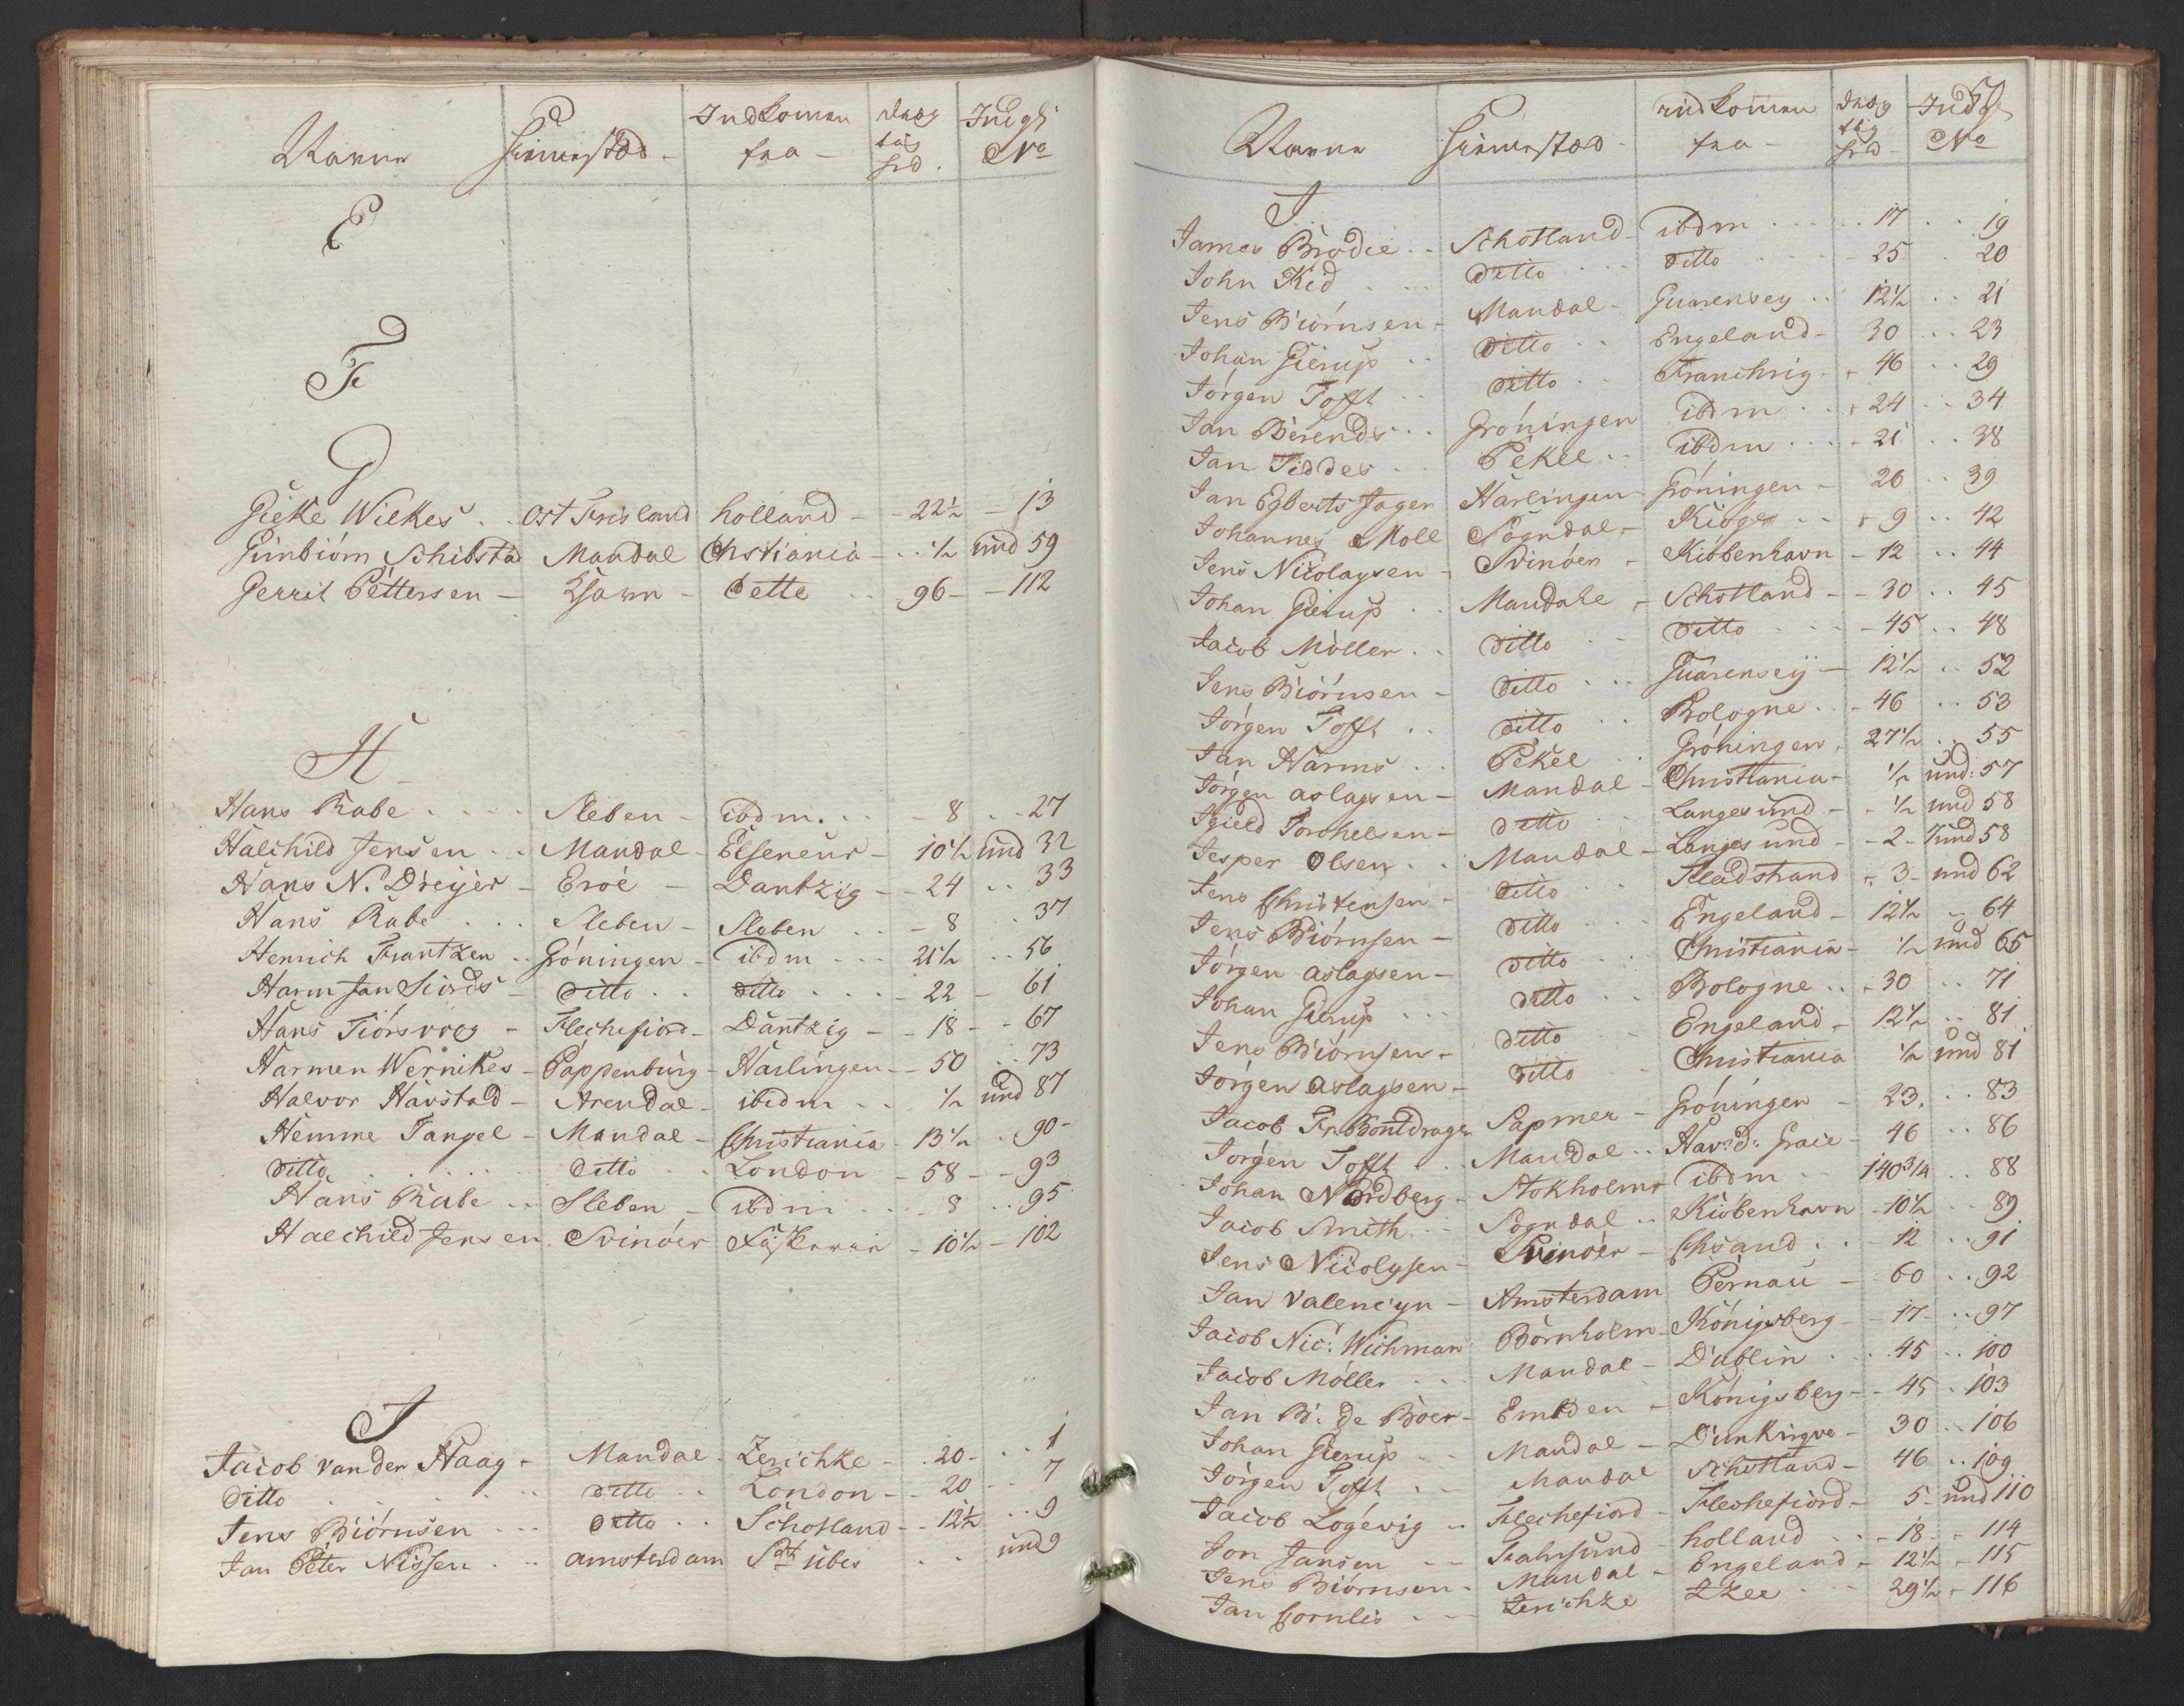 Navne Hiemsted Indkomen fra drægtig hed Indgh No
E
F
G
Gieke Wilkes Ost Frisland holland 22½ 13
Gunbiörn Schibsta Mandal Chstiania ½ und 59
Gerrit Pettersen Chavn dette 96 112
H
Hans Rabe Sleben ibdm. 8 27
Halchild Jensen Mandal Elseneur 10½ und 32
Hans N. Dreÿer Eroe Dantzig 24 33
Hans Rabe Sleben Sleben 8 37
Henrich Frantzen Gröningen ibdm 21½ 56
Harm Jan Siords Ditto Ditto 22 61
Hans Tiörsvog Flechefiord Dantzig 18 67
Harmen Wernikes Pappenburg Harlingen 50 73
Halvor Havstad Arendal ibidm ½ und 87
Hemme Tangel Mandal Christiania 13½ 90
Ditto Ditto London 58 93
Hans Rabe Sleben ibdm 8 95
Halchild Jensen Svinöer 10½ 102
J
Jacob van der Haag Mandal Zerichze 20 1
Ditto Ditto London 20 7
Jens Biörnsen Ditto Schotland 12½ 9
Jan Peter Nissen amsterdam St übes und 9
50
Navne Hiemsted indkomen fra dræg tig hed Indgh No
J
James Brodie Schotland ibdm 17 19
John Kid Ditto Ditto 25 20
Jens Biörnsen Mandal Guarensey 12½ 21
Johan Gierup Ditto Engeland 30 23
Jörgen Tofft Ditto Franchrig 46 29
Jan Berends Gröningen ibdm 24 34
Jan Tiddes Pekel ibdm 21 38
Jan Egberts Jager Harlingen Gröningen 26 39
Johannes Moll Sogndal Kiöge 9 42
Jens Nicolaysen Svinöer Kiöbenhavn 12 44
Johan Gierup Mandahl Schotland 30 45
Jacob Möller Ditto Ditto 45 48
Jens Biörnsen Ditto Guarenseÿ 12½ 52
Jörgen Tofft Ditto Bologne 46 53
Jan Harms Pekel Gröningen 27½ 55
Jörgen aslagsen Mandal Christiania ½ und: 57
Torchelsen Ditto Langesund ½ und 58
Jesper Olsen Mandal Langesund 2 und 58
Jens Christensen Ditto Fladstrand 3 und 62
Jens Biörnsen Ditto Engeland 12½ 64
Jörgen aslagsen Ditto Christiania ½ und 65
Johan Gierup Ditto Bologne 30 71
Jens Biörnsen Ditto Engeland 12½ 81
Jörgen aslagsen Ditto Christiania ½ und 81
Jacob Fr. Bontdrager Sapmer Gröningen 23 83
Jörgen Tofft Mandal Hav: d: Grace 46 86
Johan Nordberg Stokholms ibdm 140¾ 88
Jacob Smith Sogndal Kiöbenhavn 10½ 89
Jens Nicolysen Svinöer Chsand 12 91
Jan Valencyn Amsterdam Pernau 60 92
Jacob Nic: Wichman Bornholm Königsberg 17 97
Jacob Möller Mandal Dublin 45 100
Jan B: de Boer Embden Königsberg 45 103
Johan Gierup Mandal Dunkirque 30 106
Jörgen Tofft Mandal Schotland 46 109
Jacob Logevig Flechefiord Flechefiord 5 und 110
Jon Jansen Frahsund holland 18 114
Jens Biörnsen Mandal Engeland 12½ 115
Jan Cornlis Zerichze ZZee 29½ 116